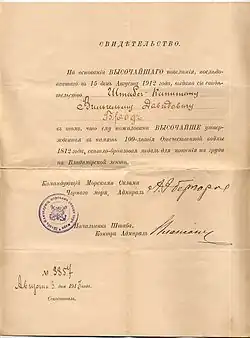 СВИДѢТЕЛЬСТВО.
На основаніи ВЫСОЧАЙШАГО повелѣнія, послѣдо-
вавшаго въ 15 день Августа 1912 года, выдано сіе свидѣ-
тельство Штабсъ-Капитану
Вильгельму Давидовичу
въ томъ, что ему пожалована ВЫСОЧАЙШЕ утвер-
жденная въ память 100-лѣтія Отечественной войны
1812 года, свѣтло-бронзовая медаль для ношенія на груди
на Владимірской лентѣ.
Командующій Морскими Силами
Чернаго моря, Адмиралъ
Начальникъ Штаба,
Контръ Адмиралъ
№ 3857
Августа 3 дня 191 года.
Севастополь.